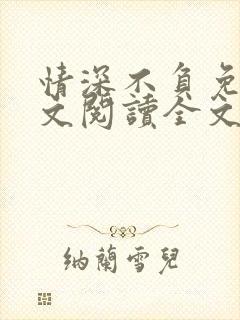 情深不負免
文閱讀全文
納蘭雪兒